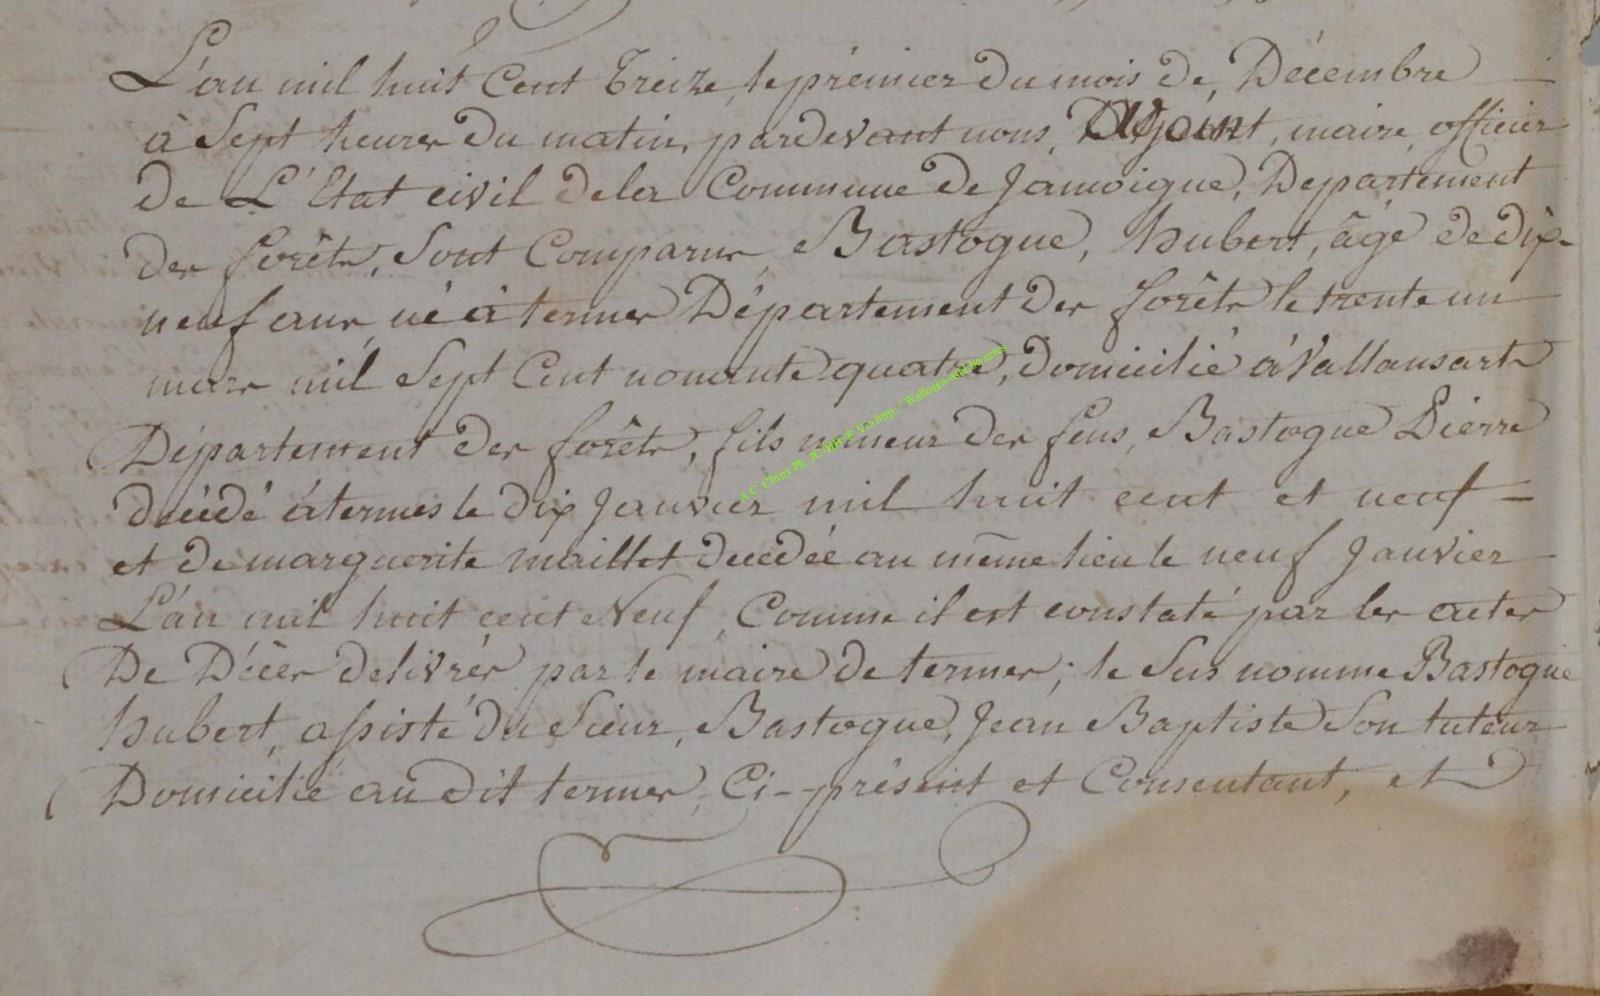 L'an mil huit Cent Treize, le prémier du mois de, Décembre
à Sept heures du matin, pardevant nous, Adjoint, maire, officier
de L'Etat civil de la Commune de Jamoigne, Département
des forêts, Sont Comparus, Bastogne, hubert, âgé de dix-
neuf ans, né à termes Département des forêts le trente un
mars mil Sept Cent nonante quatre, Domicilié à Vallansarts
Département des forêts, fils mineur des feus, Bastogne Pierre
décédé à termes le dix Janvier mil huit cent et neuf =
et de marguerite maillet decedée au même lieu le neuf Janvier
L'an mil huit cent Neuf, Comme il est constaté par les actes
De Décès delivrés par le maire de termes; le Sus nommé Bastogne
hubert, assisté du Sieur, Bastogne, Jean Baptiste Son tuteur
Domicilié au dit termes, Ci-présent et Consentant, et